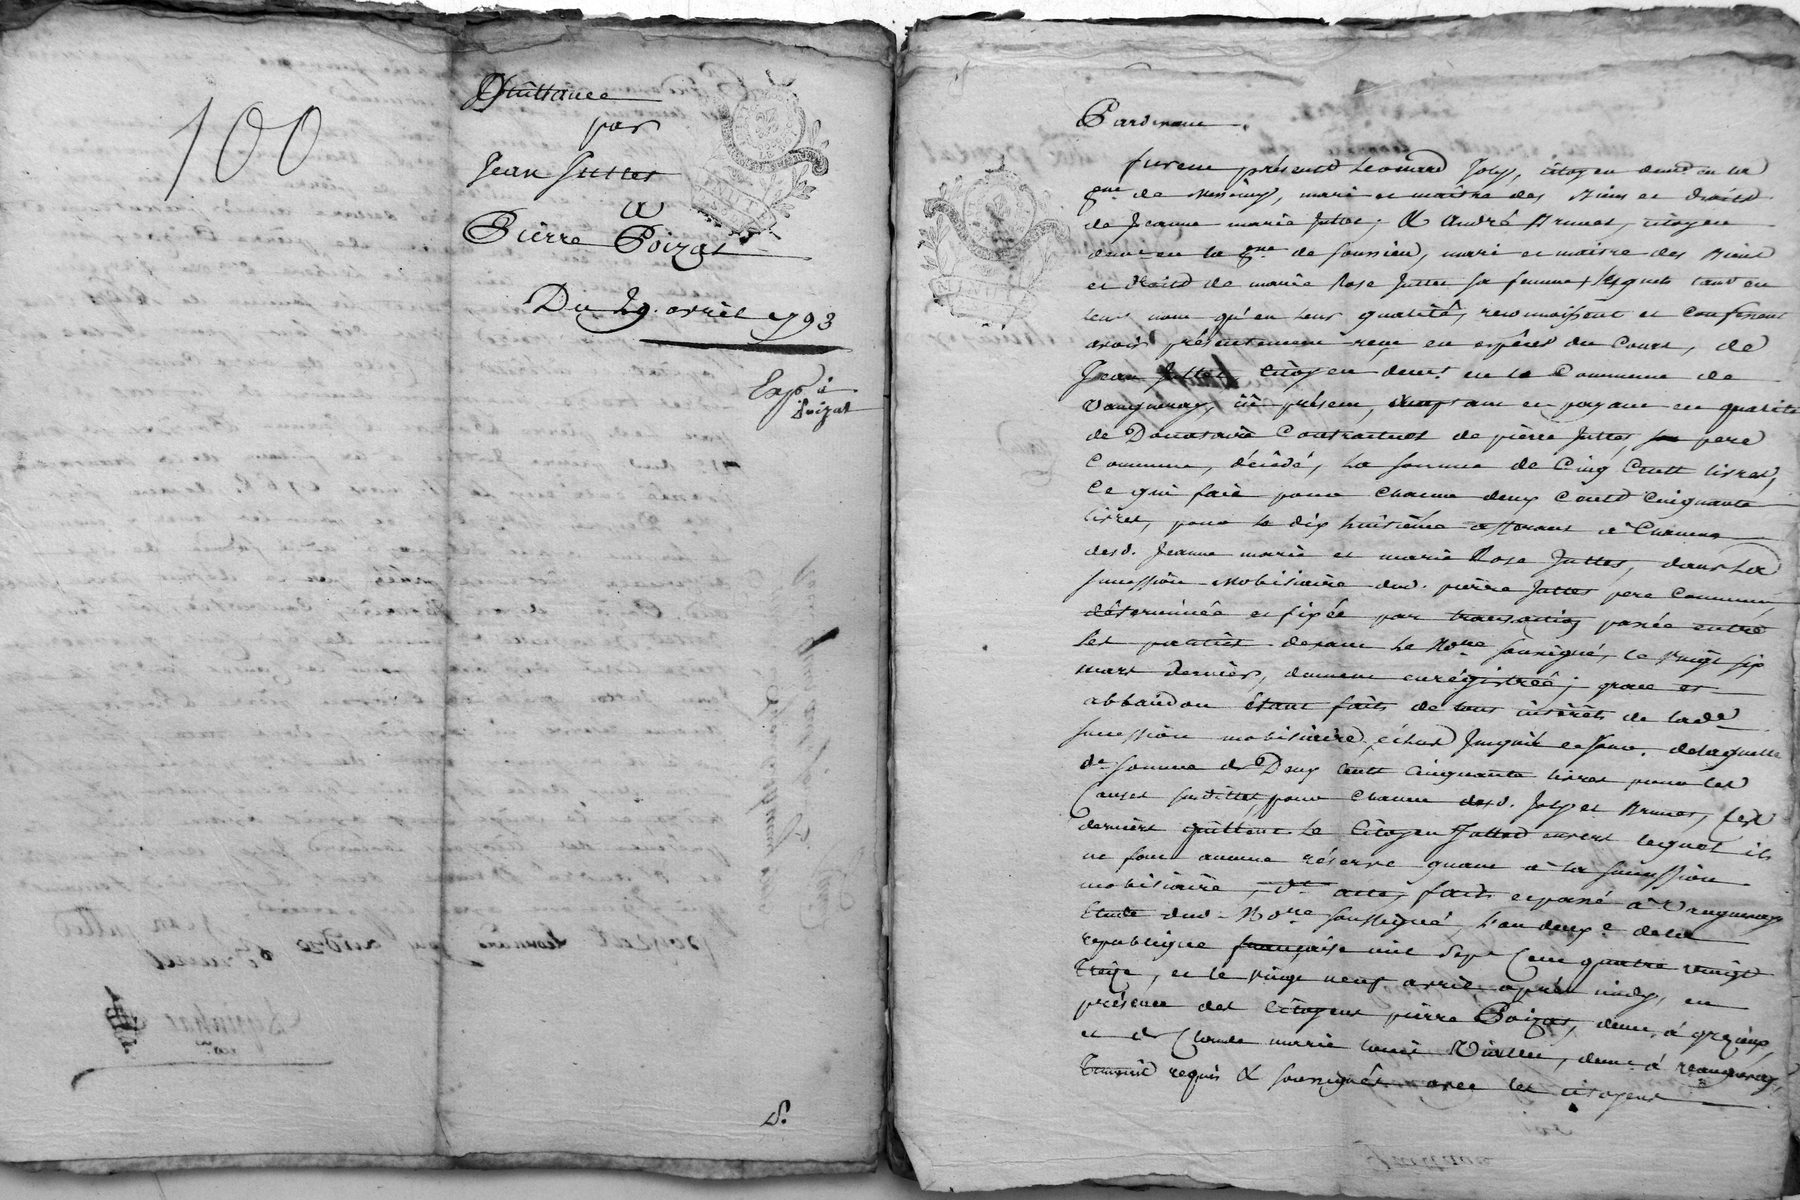 100
Quittance
par
Jean Juttet
à
Pierre Poizat
Du 29. avril 1793
Exp. à
Poizat
S.
Pardevant
furent présents Leonard Joly, citoyen demt. en la
de Messimy, mari et maître des Biens et droits
de Jeanne marie Juttet; & André Brunet, citoyen
demt. en la de Soussieu, mari et maitre des Biens
et droits de marie Rose Juttet sa femme, lesquels tant en
leurs noms qu'en leurs qualités, reconnoissent et confessent
avoir présentement reçu en espèces du Cours, de
Jean Juttet, citoyen demt. en la Commune de
Vaugneray, ici présent, et payant en qualité
de Donataire Contractuel de pierre Juttet, pere
Commun, décédé, la somme de Cinq Cents livres,
Ce qui fait pour chacun deux Cents Cinquante
livres, pour le dix huitième afférant à Chacune
desd. Jeanne marie et marie Rose Juttet, dans La
succession Mobiliaire dud. pierre Juttet pere Commun
déterminée et fixée par transaction passée entre
Les parties devant Le Nore. soussigné, le vingt six
mars dernier, duement enrégistrée; grace et
abbandon étant faits de tous intérêts de lade.
succession mobiliaire échus jusqu'à ce jour. delaquelle
de. somme de Deux Cents Cinquante livres pour les
Causes susdittes, pour chacun desd. Joly et Brunet, Ces
derniers quittent Le Citoyen Juttet envers lequel ils
ne font aucune réserve quant à la succession
mobiliaire, Dt. acte, fait et passé à Vaugneray
Etude dud. Nore. soussigné, L'an deux e. de la
republique française mil Sept Cent quatre vingt
treize, et le vingt neuf avril après midy, en
présence des Citoyens pierre Poizat, demt. à grezieux,
et de Claude marie Vialle, demt. à Vaugneray,
Témoins requis & soussignés avec les citoyens